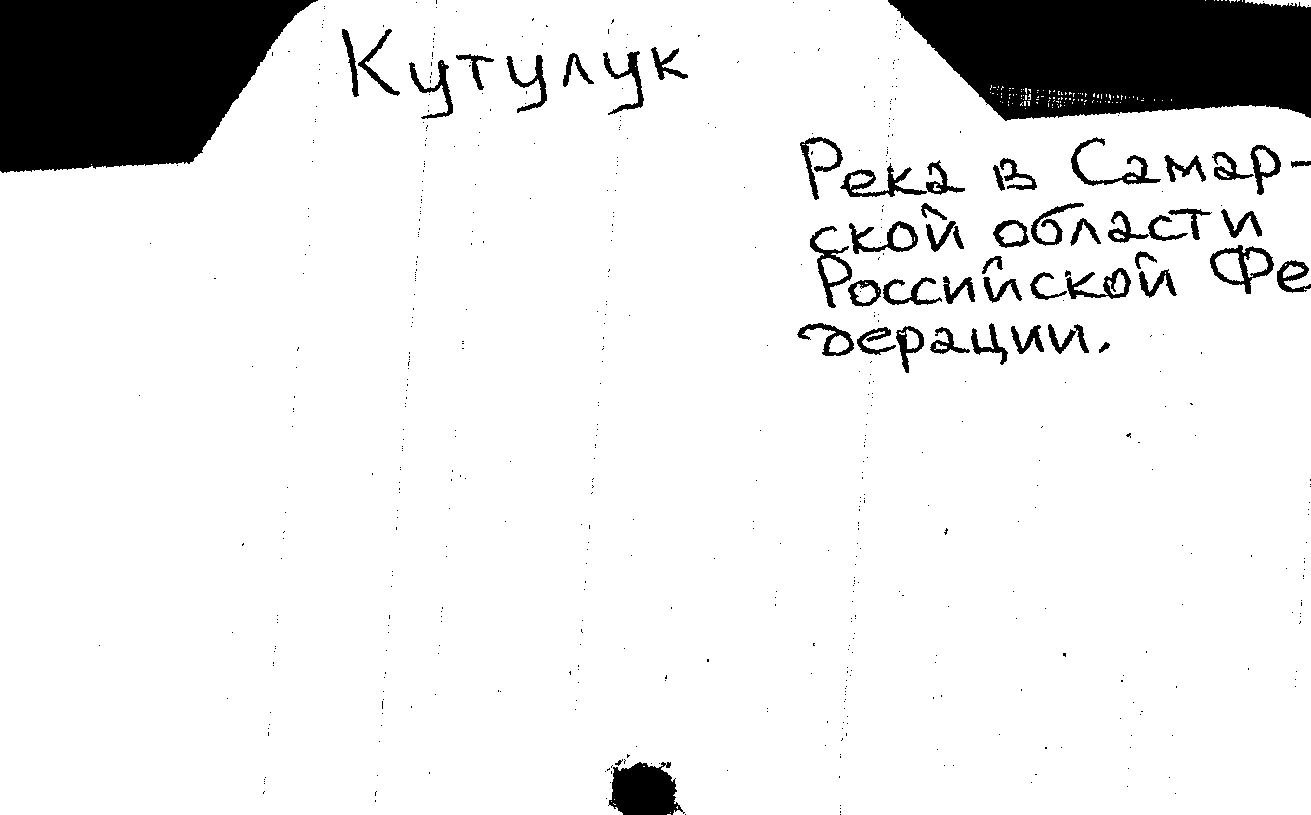 Кутулук
Река в Самар-
ской области
Российской Фе
дерации.